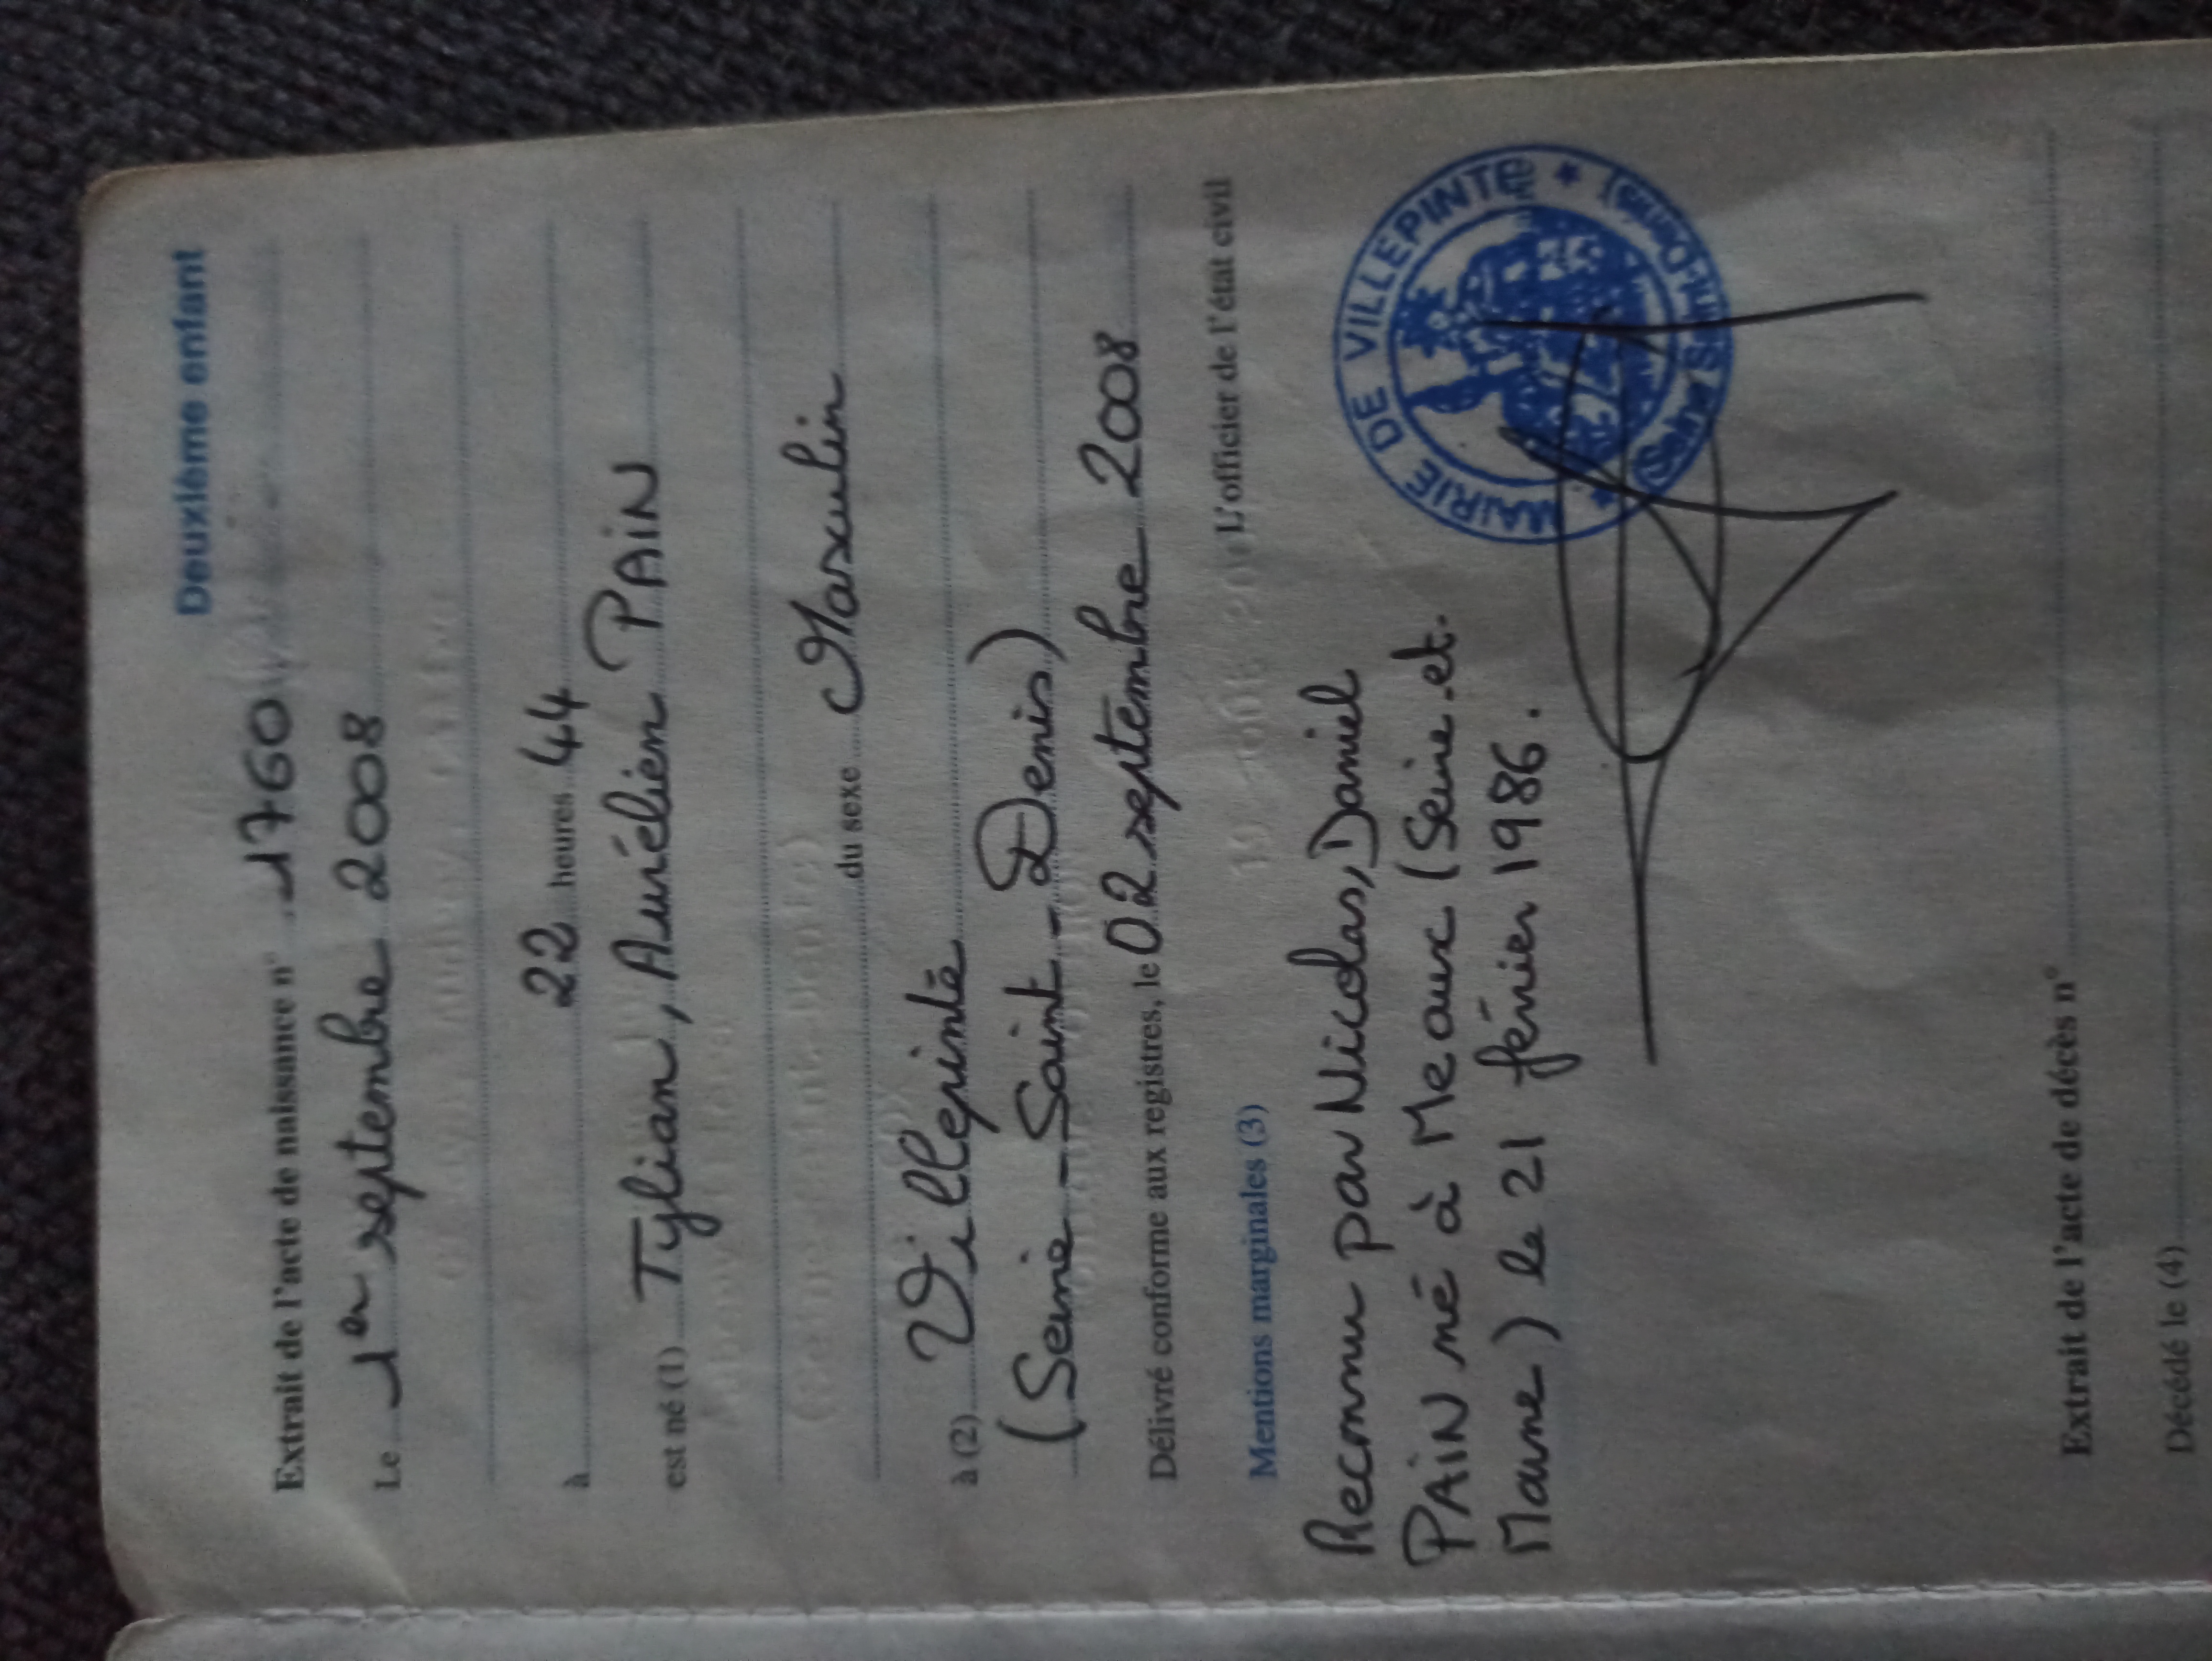 Deuxième enfant
Extrait de l'acte de naissance n° 1760
Le 1er septembre 2008
à 22 heures 44
est né (1) Tylian, Aurélien PAIN
du sexe Masculin
à (2) Villepinte
(Seine-Saint-Denis)
Délivré conforme aux registres, le 02 septembre 2008
L'officier de l'état civil
Mentions marginales (3)
Reconnu par Nicolas, Daniel
PAIN né à Meaux (Seine-et-
Marne) le 21 février 1986.
MAIRIE DE VILLEPINTE
(Seine-Saint-Denis)
Extrait de l'acte de décès n°
Décédé le (4)